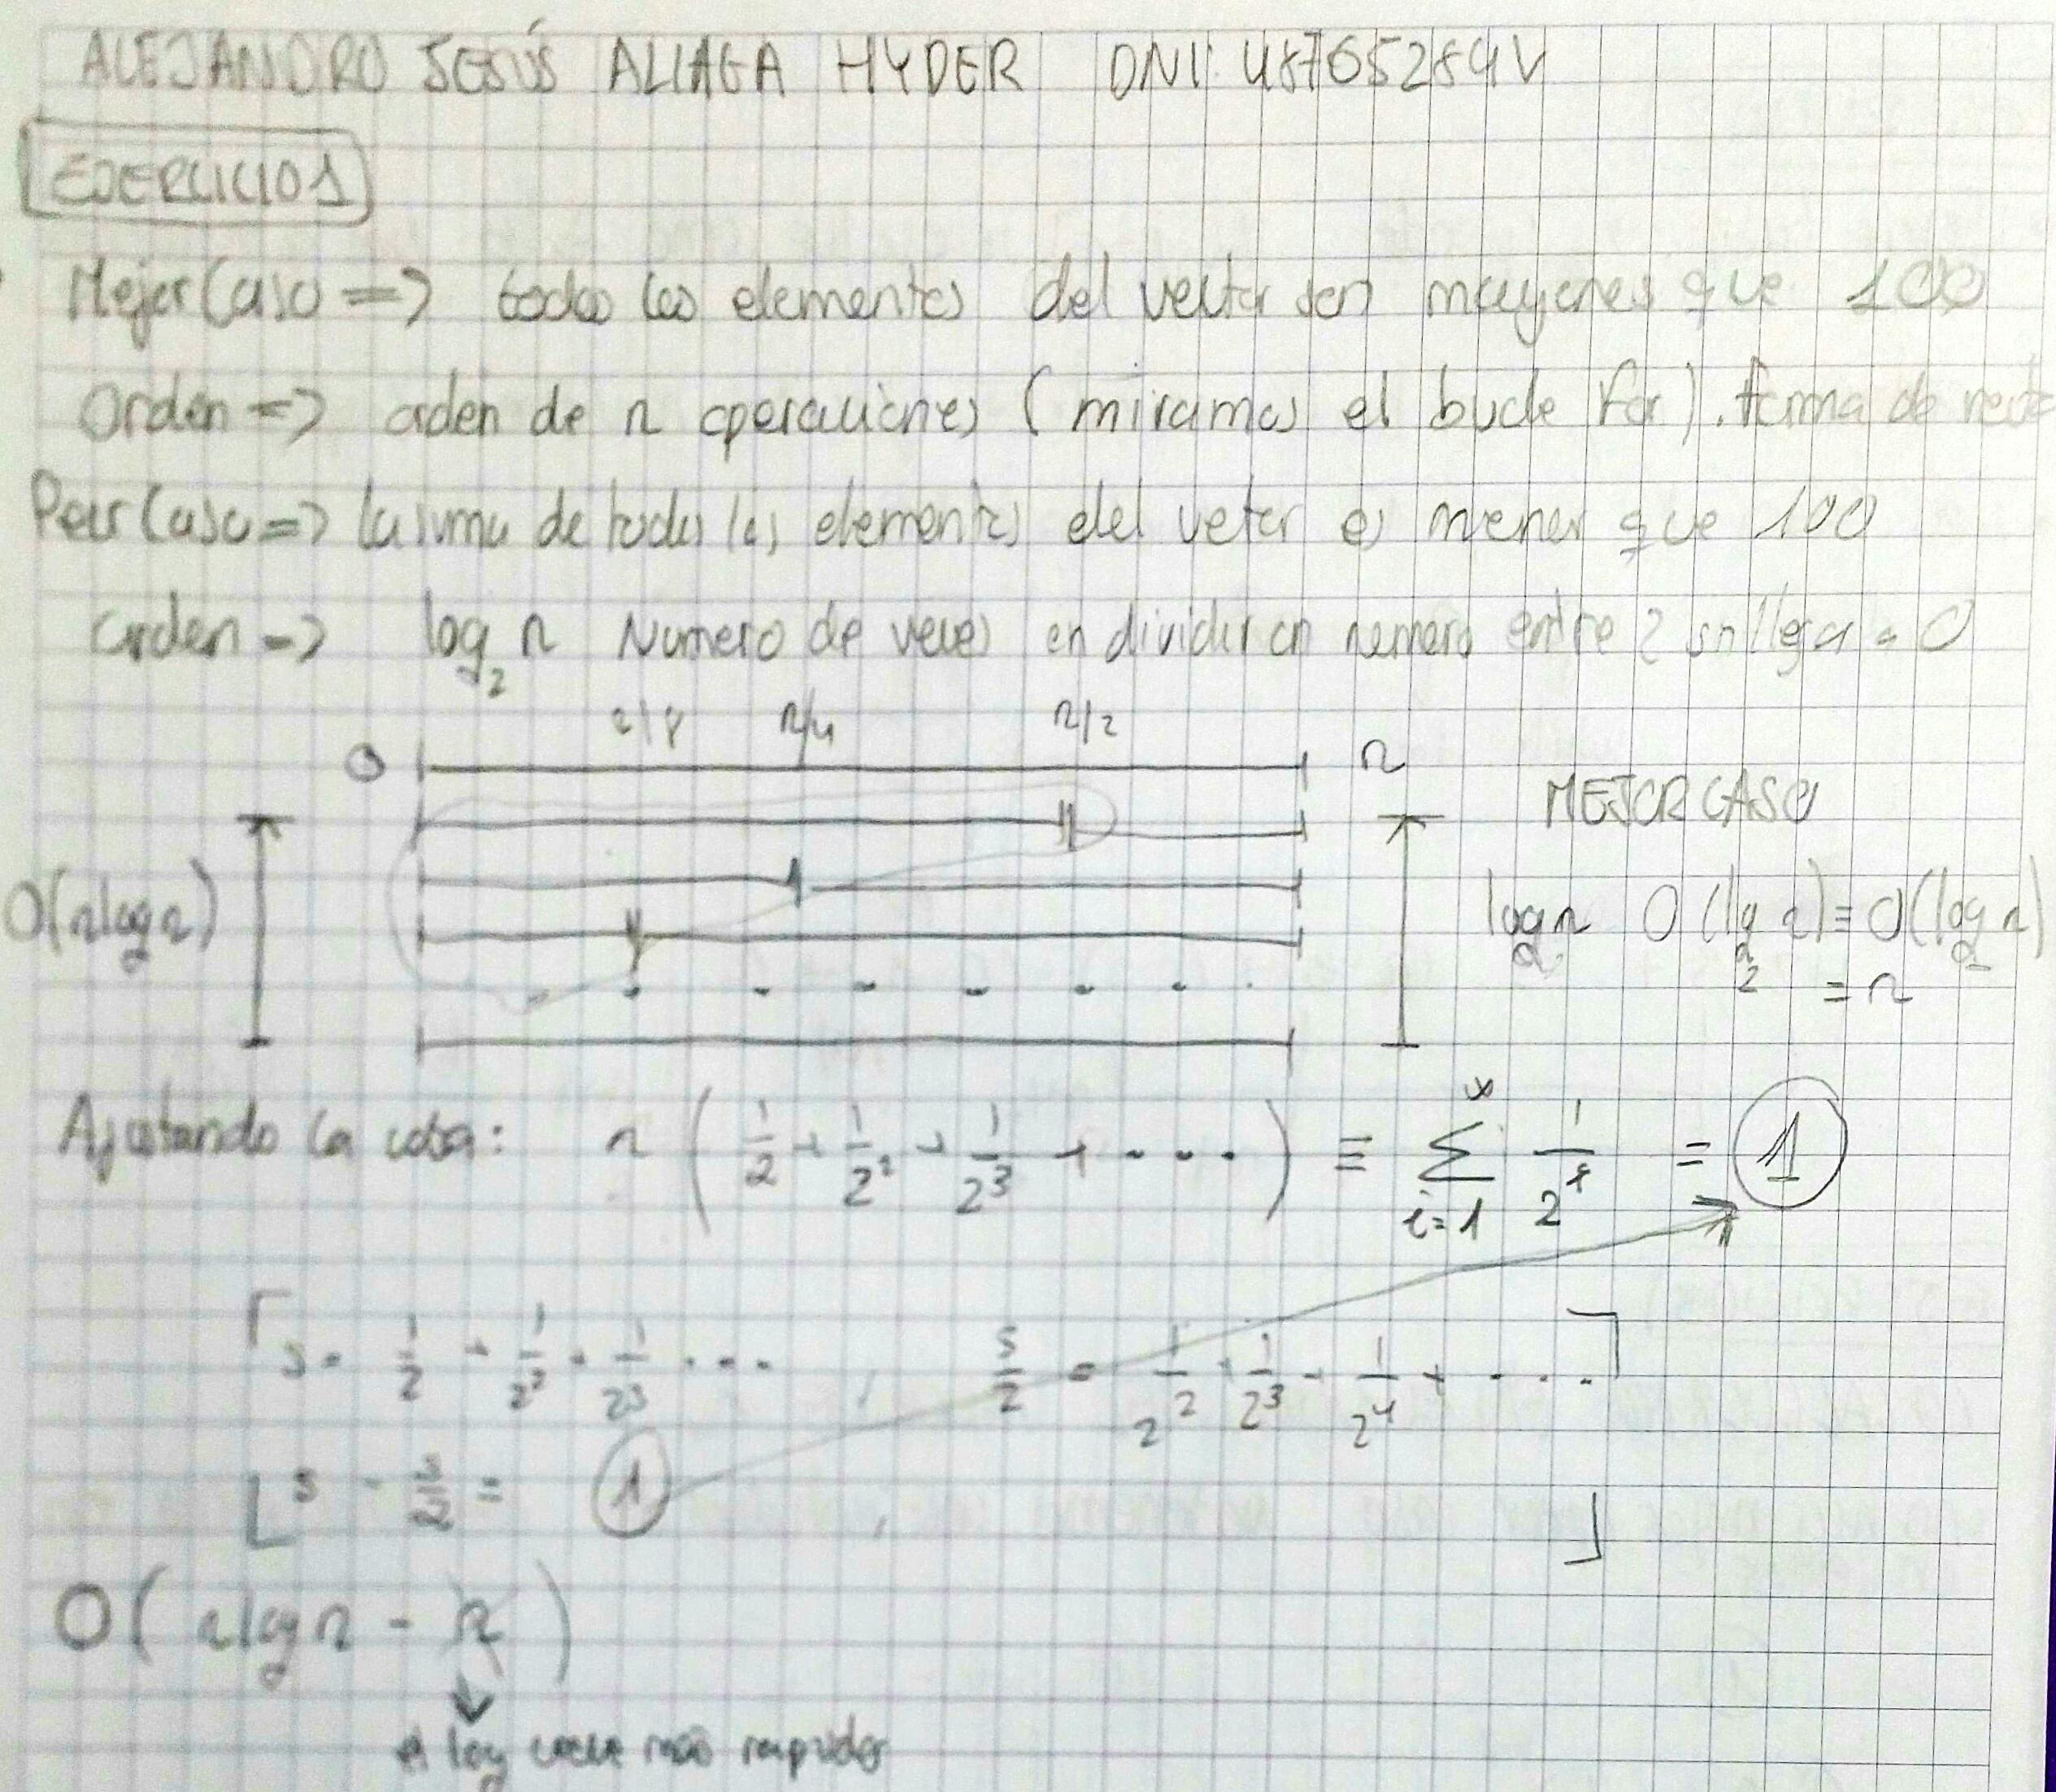 ALEJANDRO JESÚS ALIAGA HYDER DNI: 48765284V
EJERCICIO 1
Mejor Caso => todos los elementos del vector son mayores que 100
Orden => orden de n operaciones (miramos el bucle for). forma de recta
Peor Caso => la suma de todos los elementos del vetor es menor que 100
orden => log₂ n Numero de veces en dividir un numero entre 2 sn llegar a 0
n/8 n/4 n/2
0 n
MEJOR CASO
O(n log n)
log₂ n O(log₂ n) ≡ O(log n)
= n
Ajustando la cota: n (1/2 + 1/2² + 1/2³ + ....) ≡ ∑ i=1 ∞ 1/2^i = 1
s = 1/2 + 1/2² + 1/2³ ... , s/2 = 1/2² + 1/2³ + 1/2⁴ + ....
s - s/2 = 1
O(n log n - n)
el log crece más rapido